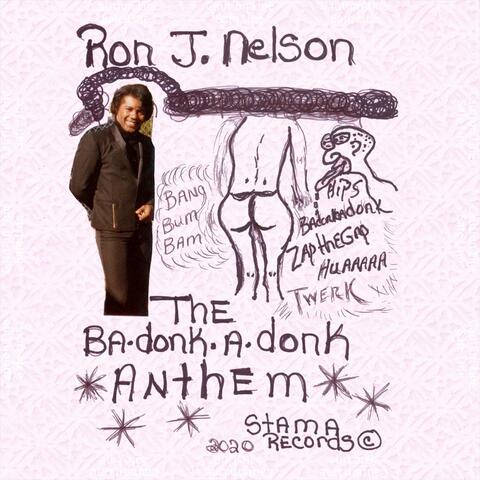 Ron J. Nelson
BANG
Bum
BAM
HiPS
BAdonkAdonk
ZAp thE GAp
HUAAAAA
TWERK
ThE
BA·donk·A·donk
AnthEm
StAmA
2020 RECORdS ©